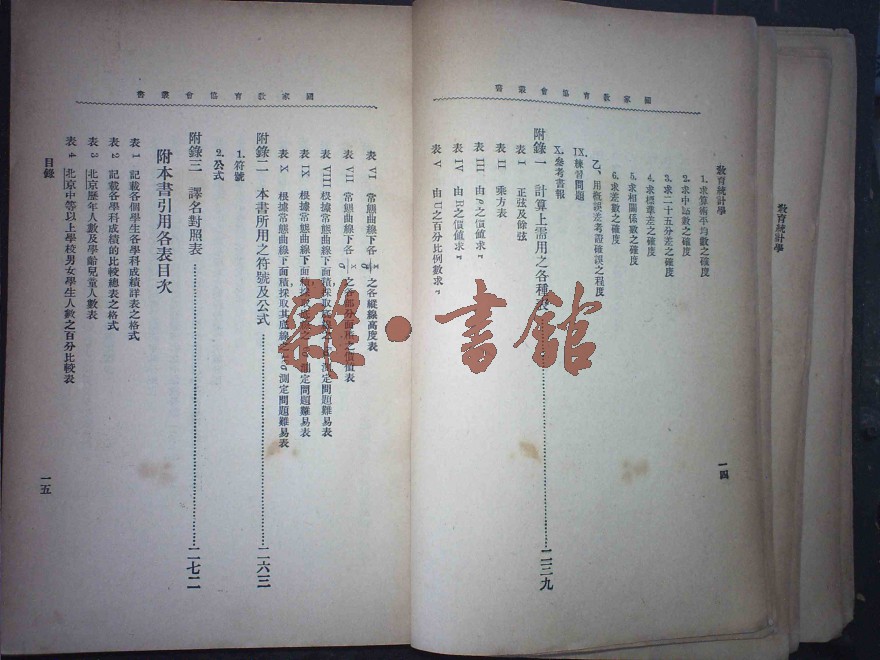 國家教育協會叢書
教育統計學
教育統計學
1.求算術平均數之確度
2.求中點數之確度
3.求二十五分差之確度
4.求標準差之確度
5.求相關係數之確度
6.求差數之確度
乙、用機誤差考證確誤之程度
IX.練習問題
X.參考書報
附錄一 計算上需用之各種 二三九
表 I 正弦及餘弦
表 II 乘方表
表 III 由ρ之價值求r
表 IV 由R之價值求r
表 V 由U之百分比例數求r
一四
國家教育協會叢書
表 VI 常態曲線下各 x/σ 之各縱線高度表
表 VII 常態曲線下各 x/σ 之各部分面積之價值表
表 VIII 根據常態曲線下面積,採取 測定問題難易表
表 IX 根據常態曲線下面積,採取 測定問題難易表
表 X 根據常態曲線下面積,採取其底線 σ測定問題難易表
附錄二 本書所用之符號及公式 二六三
1.符號
2.公式
附錄三 譯名對照表 二七二
附本書引用各表目次
表 1 記載各個學生各學科成績詳表之格式
表 2 記載各學科成績的比較總表之格式
表 3 北京歷年人數及學齡兒童人數表
表 4 北京中等以上學校男女學生人數之百分比較表
目錄
一五
雜·書館